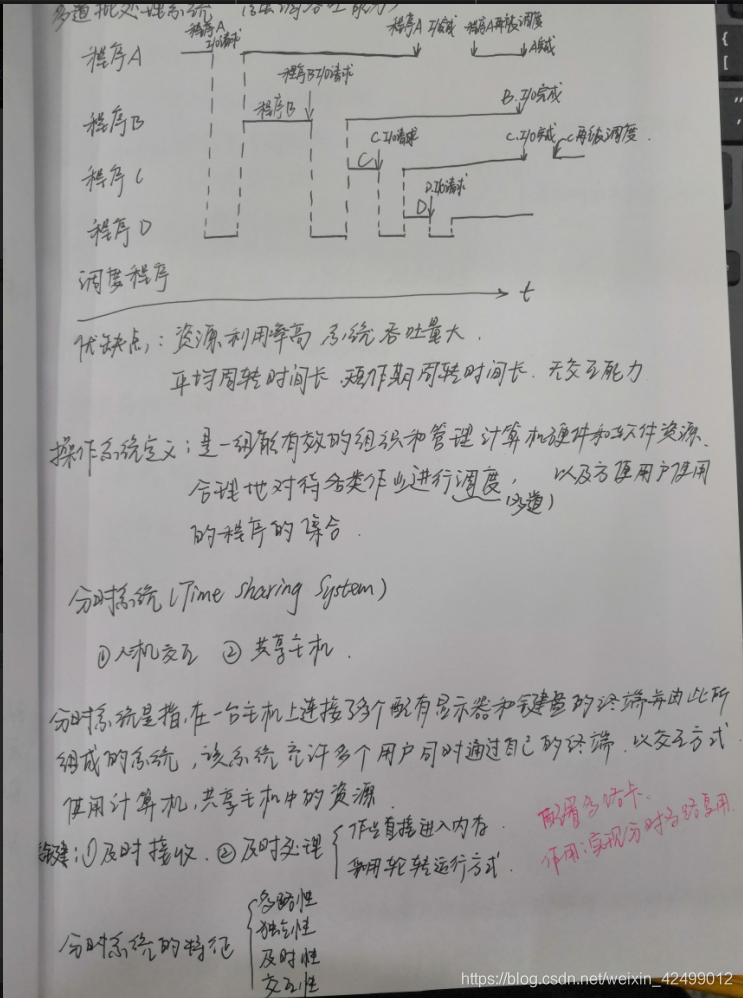 多道批处理系统
程序A I/O请求
程序A I/O完成
程序A再被调度
A完成
程序A
程序B I/O请求
程序B
B.I/O完成
程序B
C I/O请求
C.I/O完成
C再被调度.
C
程序C
D.I/O请求
D
程序D
调度程序
t
优缺点: 资源利用率高 系统吞吐量大.
平均周转时间长. 无交互能力
操作系统定义: 是一组能有效的组织和管理计算机硬件和软件资源、
合理地对待各类作业进行调度, 以及方便用户使用
(多道)
的程序的集合.
分时系统(Time Sharing System)
①人机交互 ②共享主机.
分时系统是指,在一台主机上连接了多个配有显示器和键盘的终端并由此所
组成的系统,该系统允许多个用户同时通过自己的终端.以交互方式
使用计算机,共享主机中的资源.
关键:①及时接收.②及时处理
作业直接进入内存.
采用轮转运行方式.
配置多路卡.
作用:实现分时多路复用.
分时系统的特征
多路性
独立性
及时性
交互性
https://blog.csdn.net/weixin_42499012